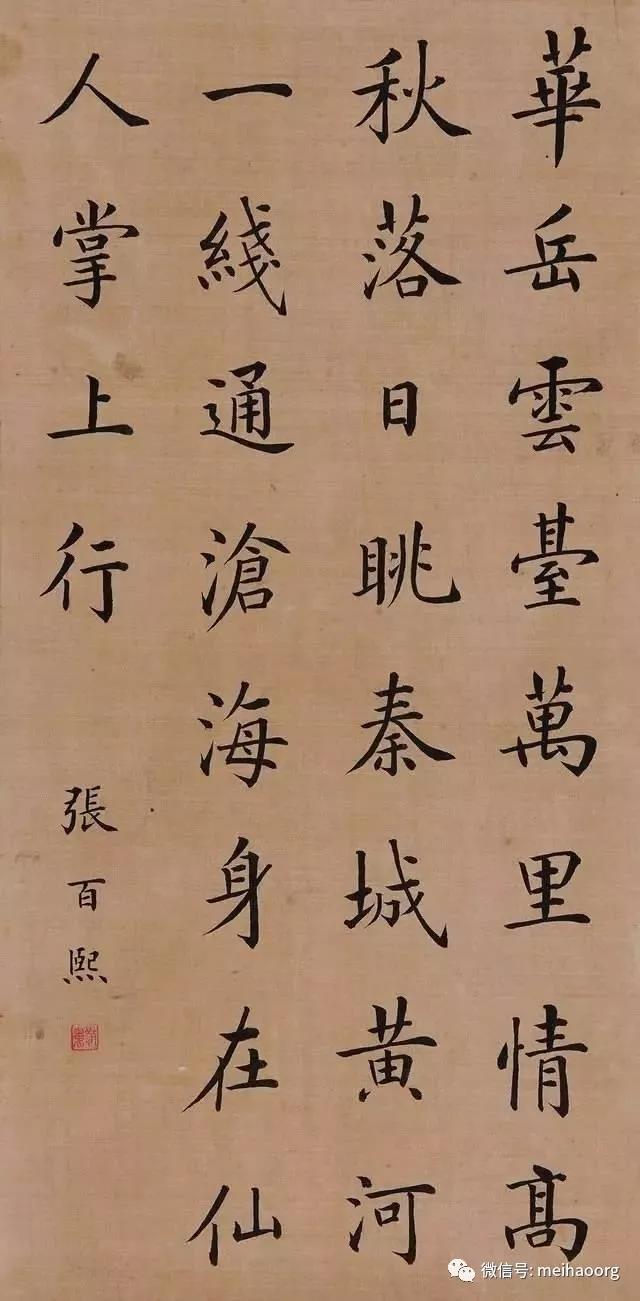 華岳雲臺萬里情髙
秋落日眺秦城黄河
一綫通滄海身在仙
人掌上行
張百熙
微信号: meihaoorg